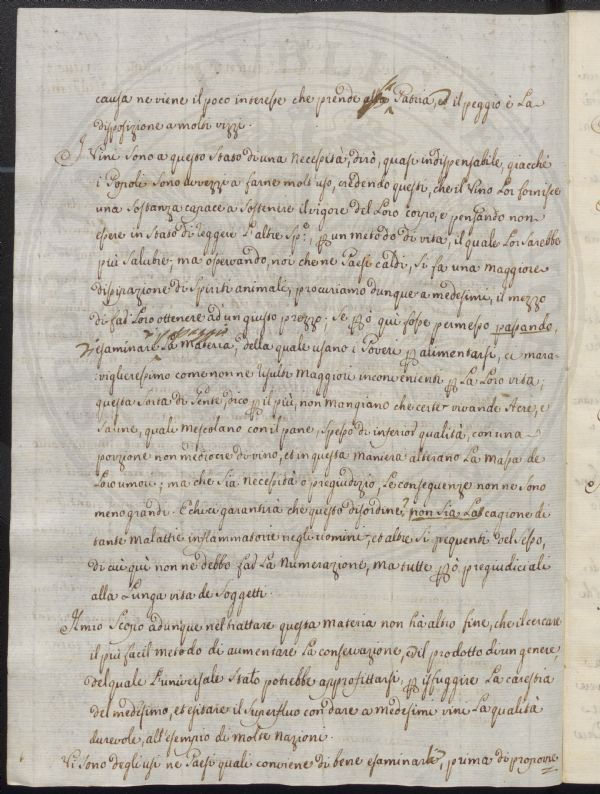 causa ne viene il poco interesse che prende alla Patria, ed il peggio è La
disposizione a molti vizzi.
I Vini sono a questo stato di una necessità, dirò, quasi indispensabile, giacchè
i Popoli sono avvezzi a farne molt'uso, credendo questi, che il Vino Lor fornisce
una sostanza capace a sostenere il vigore del Loro corpo, e pensando non
essere in stato di leggere L'altre Sp.e, per un metodo di vita, il quale Lor sarebbe
più salubre; ma osservando, noi che ne Paesi caldi, si fa una maggiore
dissipazione di Spiriti animali, procuriamo dunque a medesimi, il mezzo
di farLoro ottenere ad un giusto prezzo; Se però quì fosse permesso passando,
esaminare La materia, della quale usano i Poveri per alimentarsi, ci mara-
:viglieressimo come non ne resulti maggiori inconvenienti per La Loro vita;
questa sorta di Gente dico per il più, non mangiano che certe vivande Acre, e
Saline, quali mescolano con il pane, spesso di inferior qualità, con una
porzione non mediocre di vino, et in questa maniera alterano La massa de
Loro umori; ma che sia necessità o pregiudizio, Le conseguenze non ne sono
meno grandi. E chi ci garantirà che questo disordine, non sia La cagione di
tante malattie inflammatorie negli uomini, et altre sì frequenti del sesso,
di cui quì non ne debbo far La Numerazione, ma tutte però pregiudiciali
alla Lunga vita de Soggetti.
Il mio Scopo adunque nel trattare questa materia non hà altro fine, che il cercare
il più facil metodo di aumentare La conservazione, ed il prodotto di un genere,
del quale L'universale Stato potrebbe approfittarsi, per isfuggire La carestia
del medesimo, et esitare il superfluo con dare a medesimi vini La qualità
durevole, all'esempio di molte Nazioni.
Vi sono degli usi ne Paesi quali conviene di bene esaminarli, prima di proporre